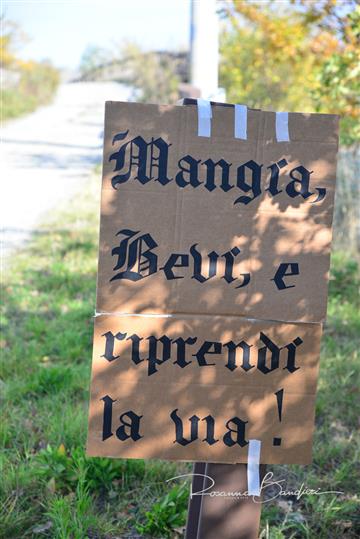 Mangia,
Bevi, e
riprendi
la via!
Rosanna Bandieri